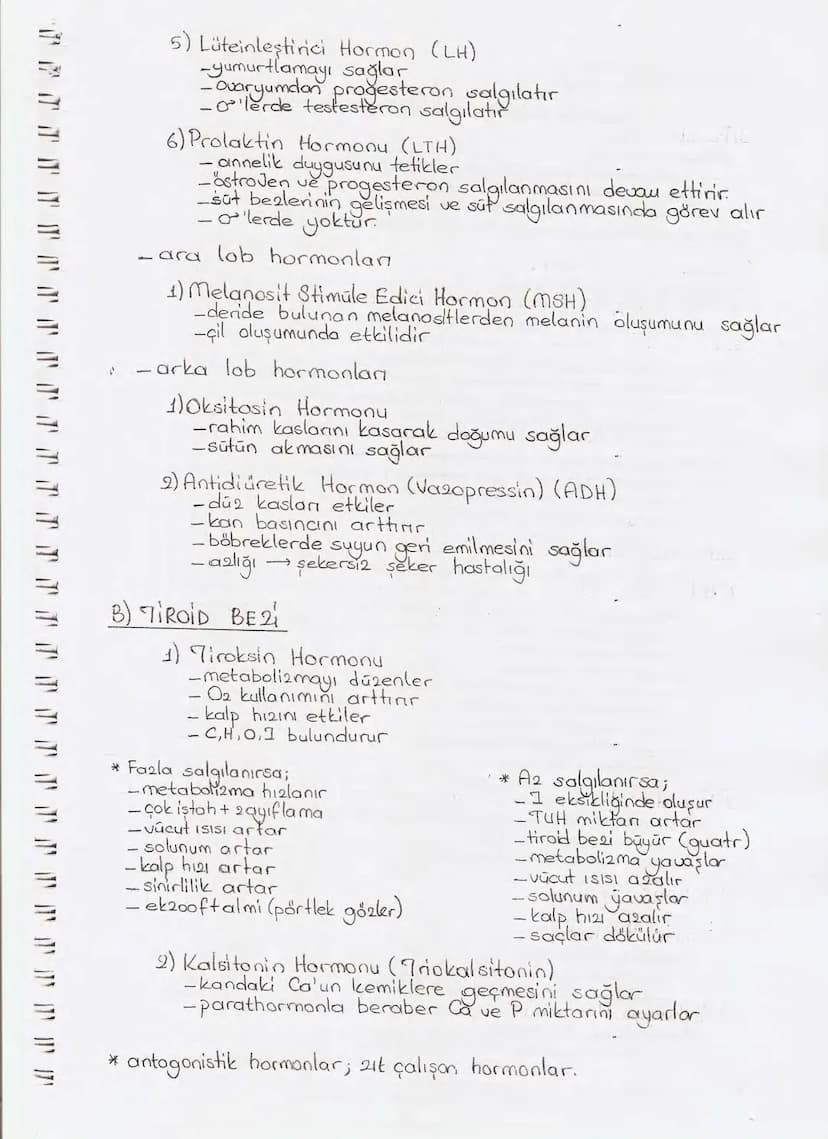 5) Lüteinleştirici Hormon (LH)
-yumurtlamayı sağlar
-Ovaryumdan progesteron salgılatır
-♂'lerde testesteron salgılatır
6) Prolaktin Hormonu (LTH)
- annelik duygusunu tetikler
-östrojen ve progesteron salgılanmasını devam ettirir.
-süt bezlerinin gelişmesi ve süt salgılanmasında görev alır
- ♂'lerde yoktur.
- ara lob hormonları
1) Melanosit Stimüle Edici Hormon (MSH)
-deride bulunan melanositlerden melanin oluşumunu sağlar
-çil oluşumunda etkilidir
- arka lob hormonları
1) Oksitosin Hormonu
-rahim kaslarını kasarak doğumu sağlar
-sütün akmasını sağlar
2) Antidiüretik Hormon (Vazopressin) (ADH)
-düz kasları etkiler
-kan basıncını arttırır
-böbreklerde suyun geri emilmesini sağlar
-azlığı → şekersiz şeker hastalığı
B) TİROİD BEZİ
1) Tiroksin Hormonu
-metabolizmayı düzenler
- O2 kullanımını arttırır
- kalp hızını etkiler
- C,H,O,I bulundurur
* Fazla salgılanırsa;
-metabolizma hızlanır
-çok iştah + zayıflama
-vücut ısısı artar
- solunum artar
-kalp hızı artar
-sinirlilik artar
- ekzooftalmi (pörtlek gözler)
* Az salgılanırsa;
- I eksikliğinde oluşur
-TUH miktarı artar
-tiroid bezi büyür (guatr)
-metabolizma yavaşlar
-vücut ısısı azalır
-solunum yavaşlar
-kalp hızı azalır
-saçlar dökülür
2) Kalsitonin Hormonu (Triokalsitonin)
-kandaki Ca'un kemiklere geçmesini sağlar
-parathormonla beraber Ca ve P miktarını ayarlar
* antogonistik hormonlar; zıt çalışan hormonlar.